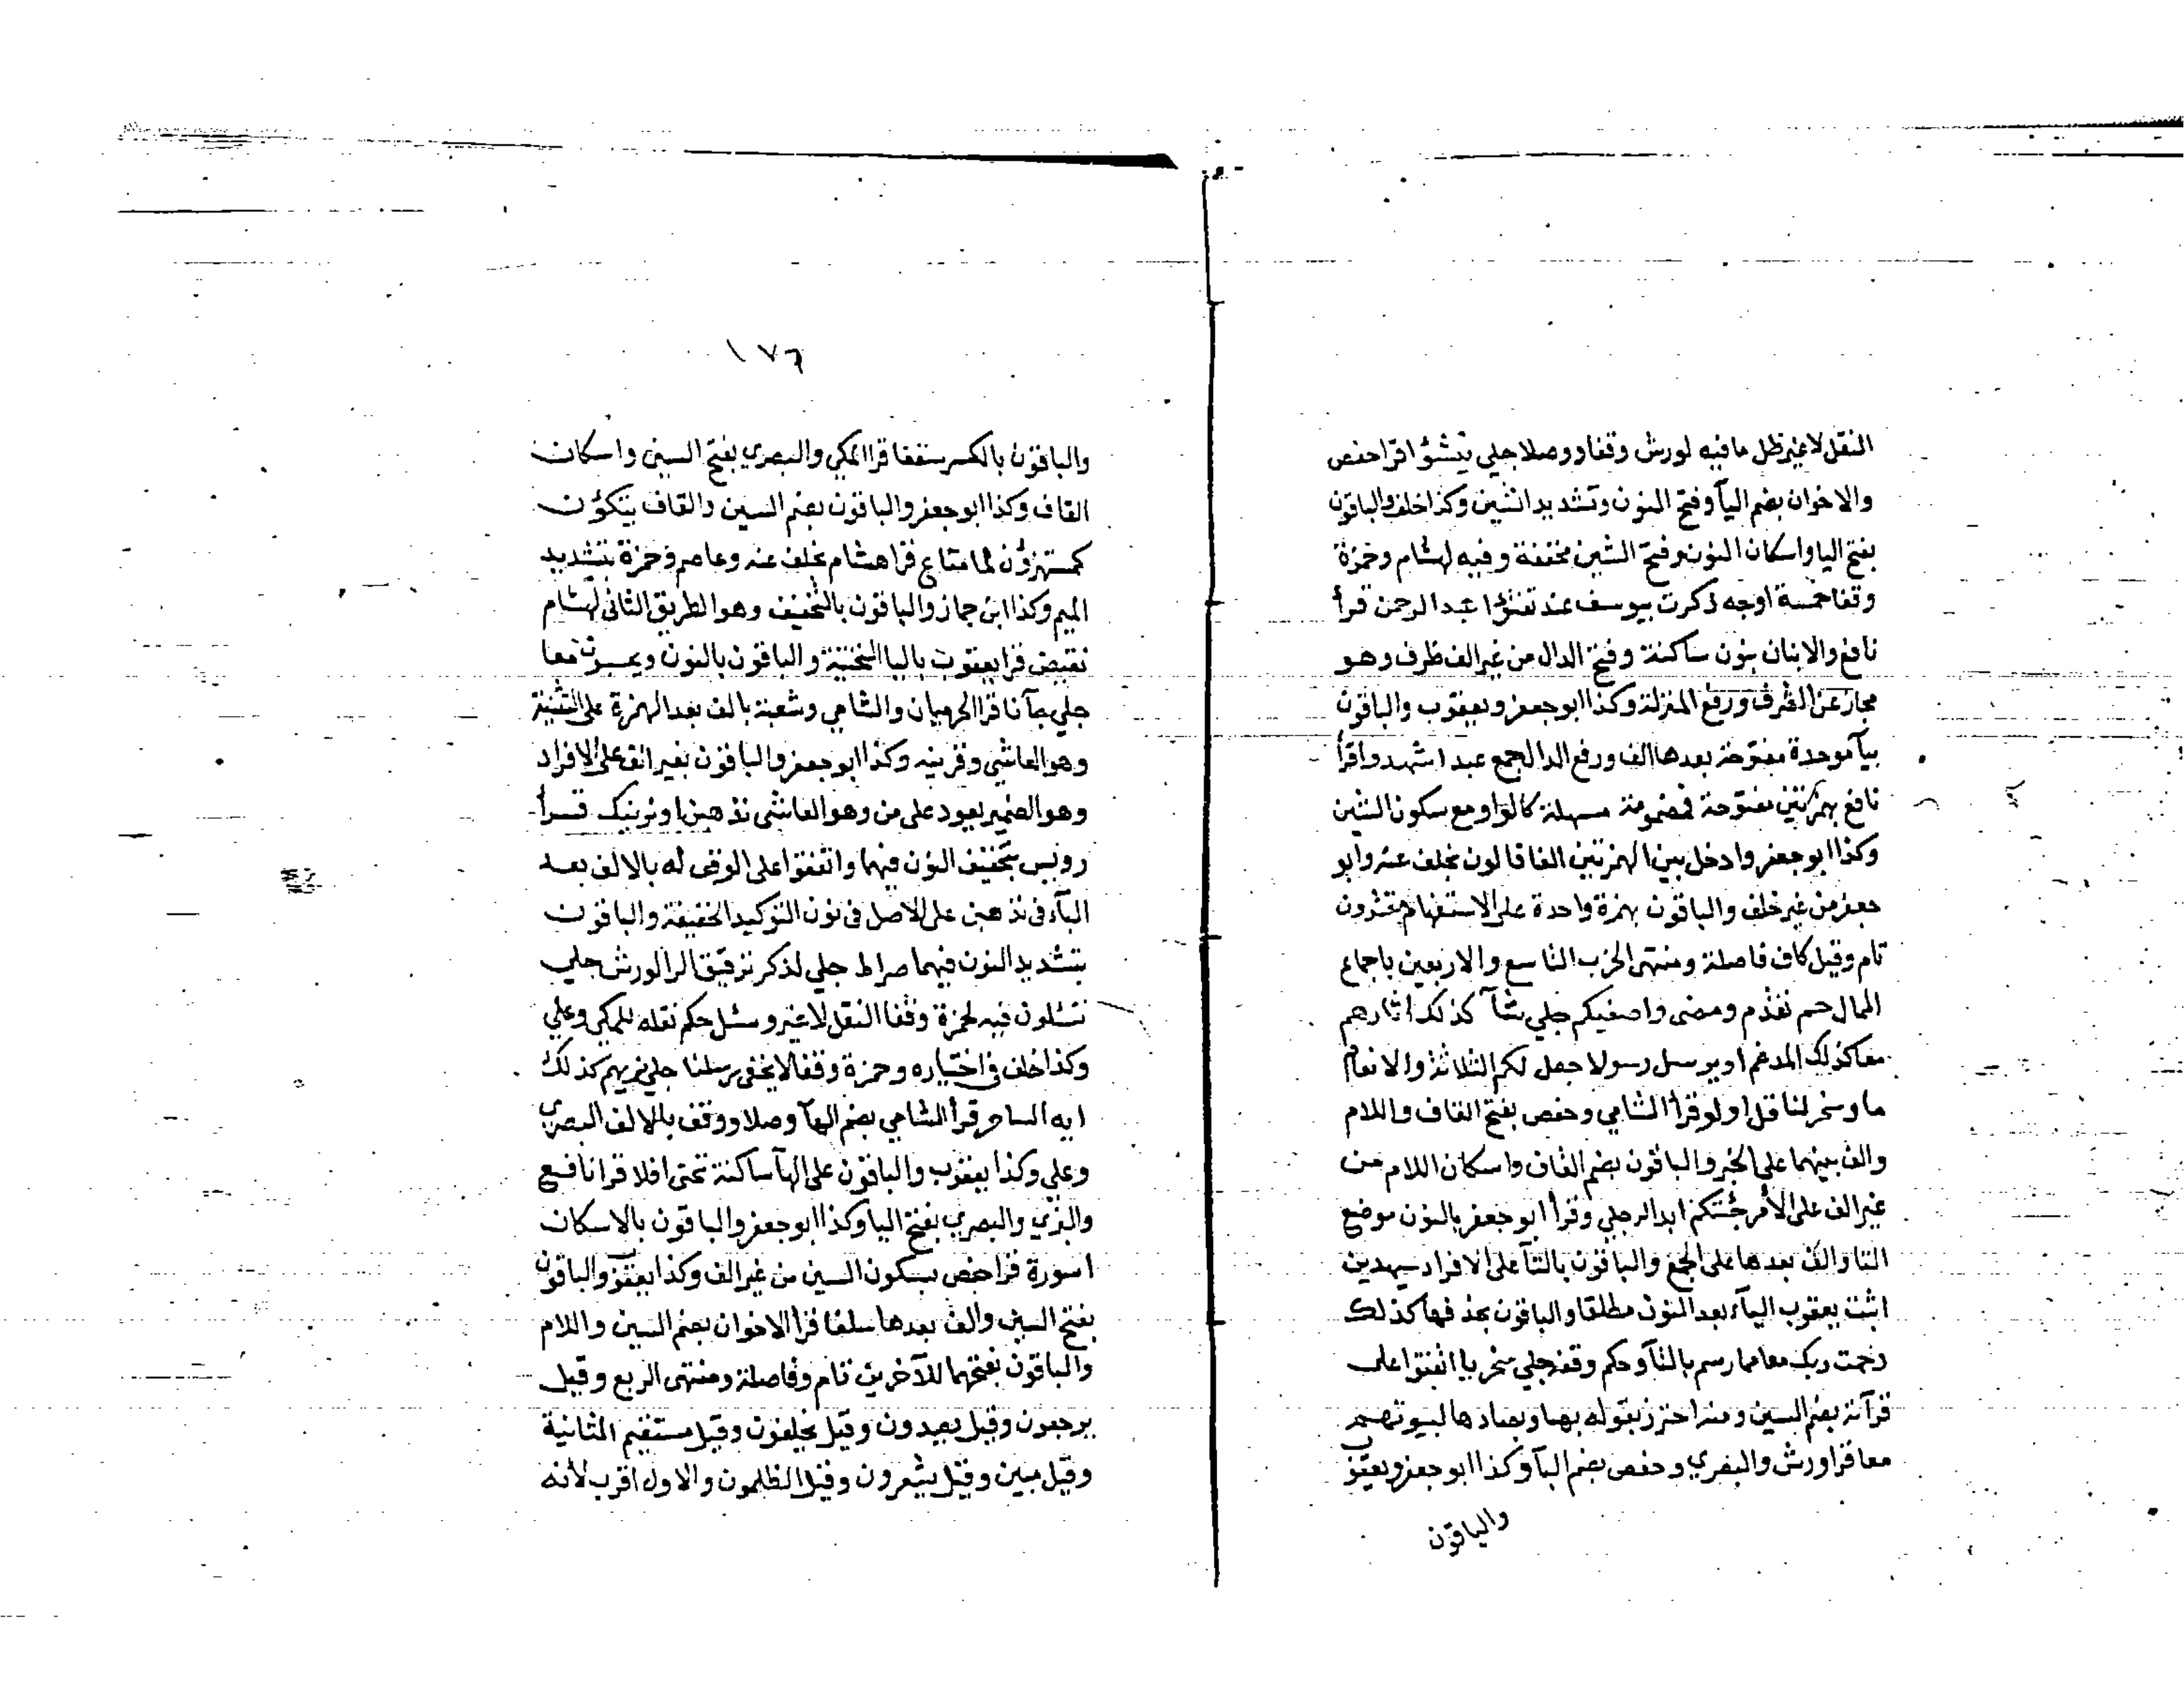 النقل لا غير ظل ما فيه لورش وقفا ووصلا جلي ينشؤا قرا حفص
والاخوان بضم اليآ وفتح النون وتشديد الشين وكذا خلف والباقون
بفتح اليا واسكان النون وفتح الشين مخففة وفيه لهشام وحمزة
وقفا خمسة اوجه ذكرت بيوسف عند تفتؤا عبد الرحمن قرأ
نافع والابنان بنون ساكنة وفتح الدال من غير الف ظرف وهو
مجاز عن الشرف ورفع المنزلة وكذا ابو جعفر ويعقوب والباقون
ببآ موحدة مفتوحة بعدها الف ورفع الدال جمع عبد اشهدوا قرأ
نافع بهمزتين مفتوحة فمضمومة مسهلة كالواو مع سكون الشين
وكذا ابو جعفر وادخل بين الهمزتين الفا قالون بخلف عنه وابو
جعفر من غير خلف والباقون بهمزة واحدة على الاستفهام مقتدون
تام وقيل كاف فاصلة ومنتهى الحزب التاسع والاربعين باجماع
الممال حم تقدم ومضى واصفيكم جلي شآ كذلك اثارهم
معا كذلك المدغم او يرسل رسولا جعل لكم الثلاثة والانعام
ما وسخر لنا قل اولو قرأ الشامي وحفص بفتح القاف واللام
والف بينهما على الخبر والباقون بضم القاف واسكان اللام من
غير الف على الأمر جئتكم ابداله جلي وقرأ ابو جعفر بالنون موضع
التا والف بعدها على الجمع والباقون بالتآ على الافراد سيهدين
اثبت يعقوب اليآء بعد النون مطلقا والباقون بحذفها كذلك
رحمت ربك معا مما رسم بالتآ وحكم وقفه جلي سخريا اتفقوا على
قرآته بضم السين ومنه احترز بقوله بها وبصادها لبيوتهم
معا قرا ورش والبصري وحفص بضم البآ وكذا ابو جعفر ويعقوب
والباقون
١٧٦
والباقون بالكسر سقفا قرا المكي والبصري بفتح السين واسكان
القاف وكذا ابو جعفر والباقون بضم السين والقاف يتكؤن
كمستهزؤن لما متاع قرا هشام بخلف عنه وعاصم وحمزة بتشديد
الميم وكذا ابن جماز والباقون بالتخفيف وهو الطريق الثاني لهشام
نقيض قرا يعقوب باليا التحتية والباقون بالنون ويحسبون معا
جلي جآنا قرا الحرميان والشامي وشعبة بالف بعد الهمزة على التثنية
وهو العاشي وقرينه وكذا ابو جعفر والباقون بغير الف على الافراد
وهو الضمير يعود على من وهو العاشي نذهبن او نرينك قرأ
رويس بتخفيف النون فيهما واتفقوا على الوقف له بالالف بعد
البآء في نذهبن على الاصل في نون التوكيد الخفيفة والباقون
بتشديد النون فيهما صراط جلي لذكر ترقيق الرا لورش جلي
تسئلون فيه لحمزة وقفا النقل لا غير وسئل حكم نقله للمكي وعلي
وكذا خلف في اختياره وحمزة وقفا لا يخفى رسلنا جلي نريهم كذلك
ايه الساحر قرأ الشامي بضم الهآ وصلا ووقف بالالف البصري
وعلي وكذا يعقوب والباقون على الهآ ساكنة تحتي افلا قرا نافع
والبزي والبصري بفتح اليا وكذا ابو جعفر والباقون بالاسكان
اسورة قرا حفص بسكون السين من غير الف وكذا يعقوب والباقون
بفتح السين والف بعدها سلفا قرأ الاخوان بضم السين واللام
والباقون بفتحهما للآخرين تام وفاصلة ومنتهى الربع وقيل
يرجعون وقيل يعبدون وقيل يخلفون وقيل مستقيم الثانية
وقيل مبين وقيل يشعرون وقيل الظلمون والاول اقرب لأنه